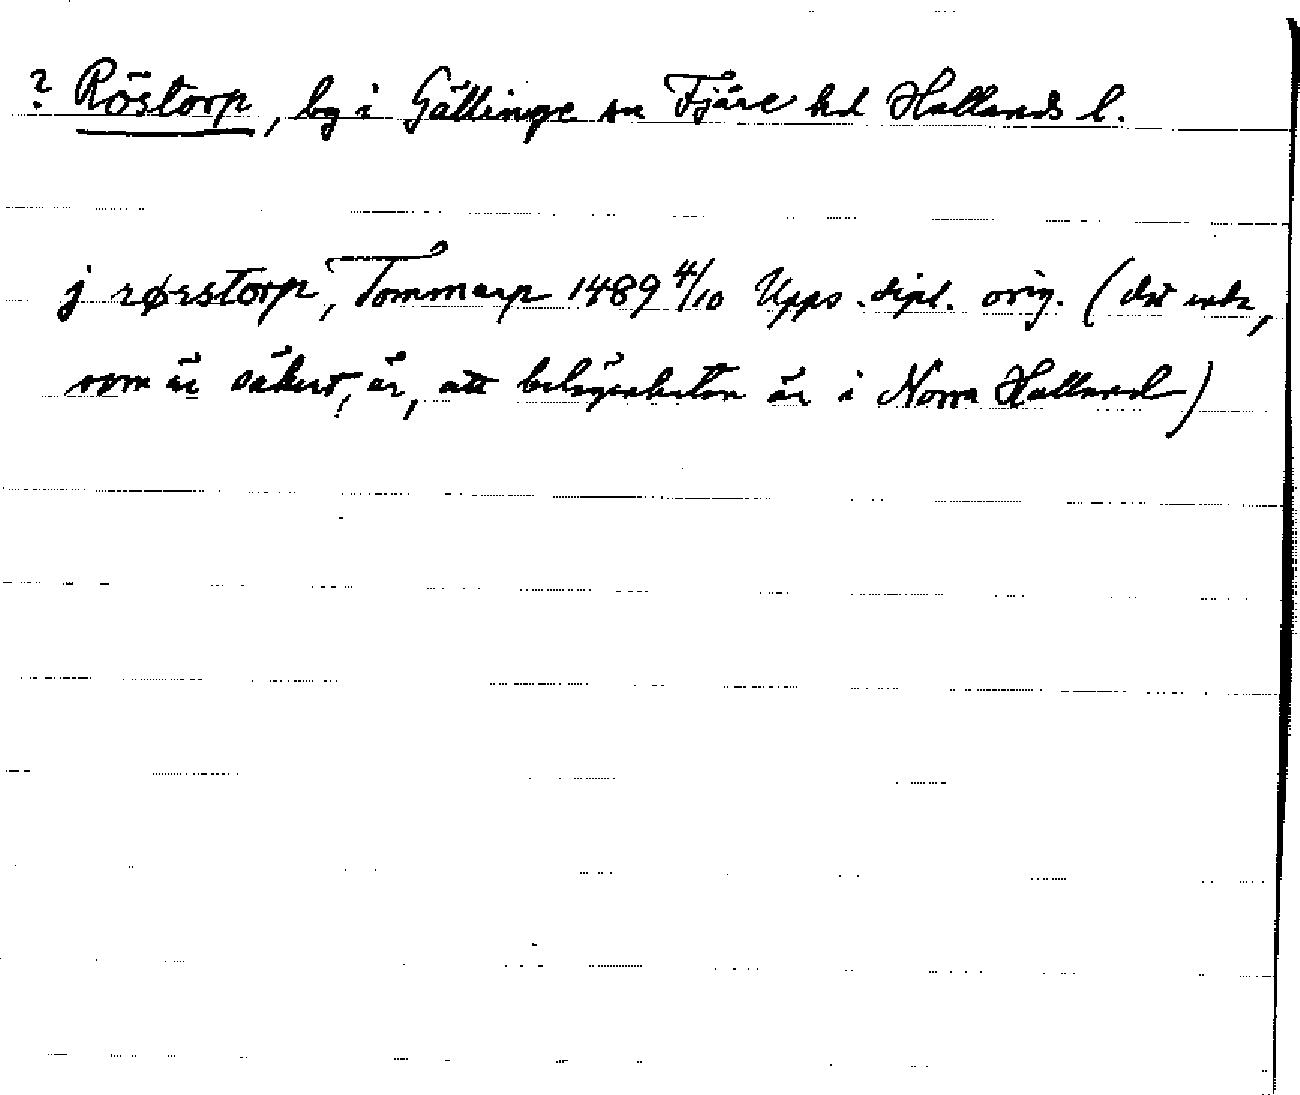 ? Röstorp, by i Gällinge sn Fjäre hd Hallands l.
j rørstorp, Tommarp 1489 4/10 Upps. dipl. orig. (det enda,
som är säkert, är, att belägenheten är i Norra Halland)